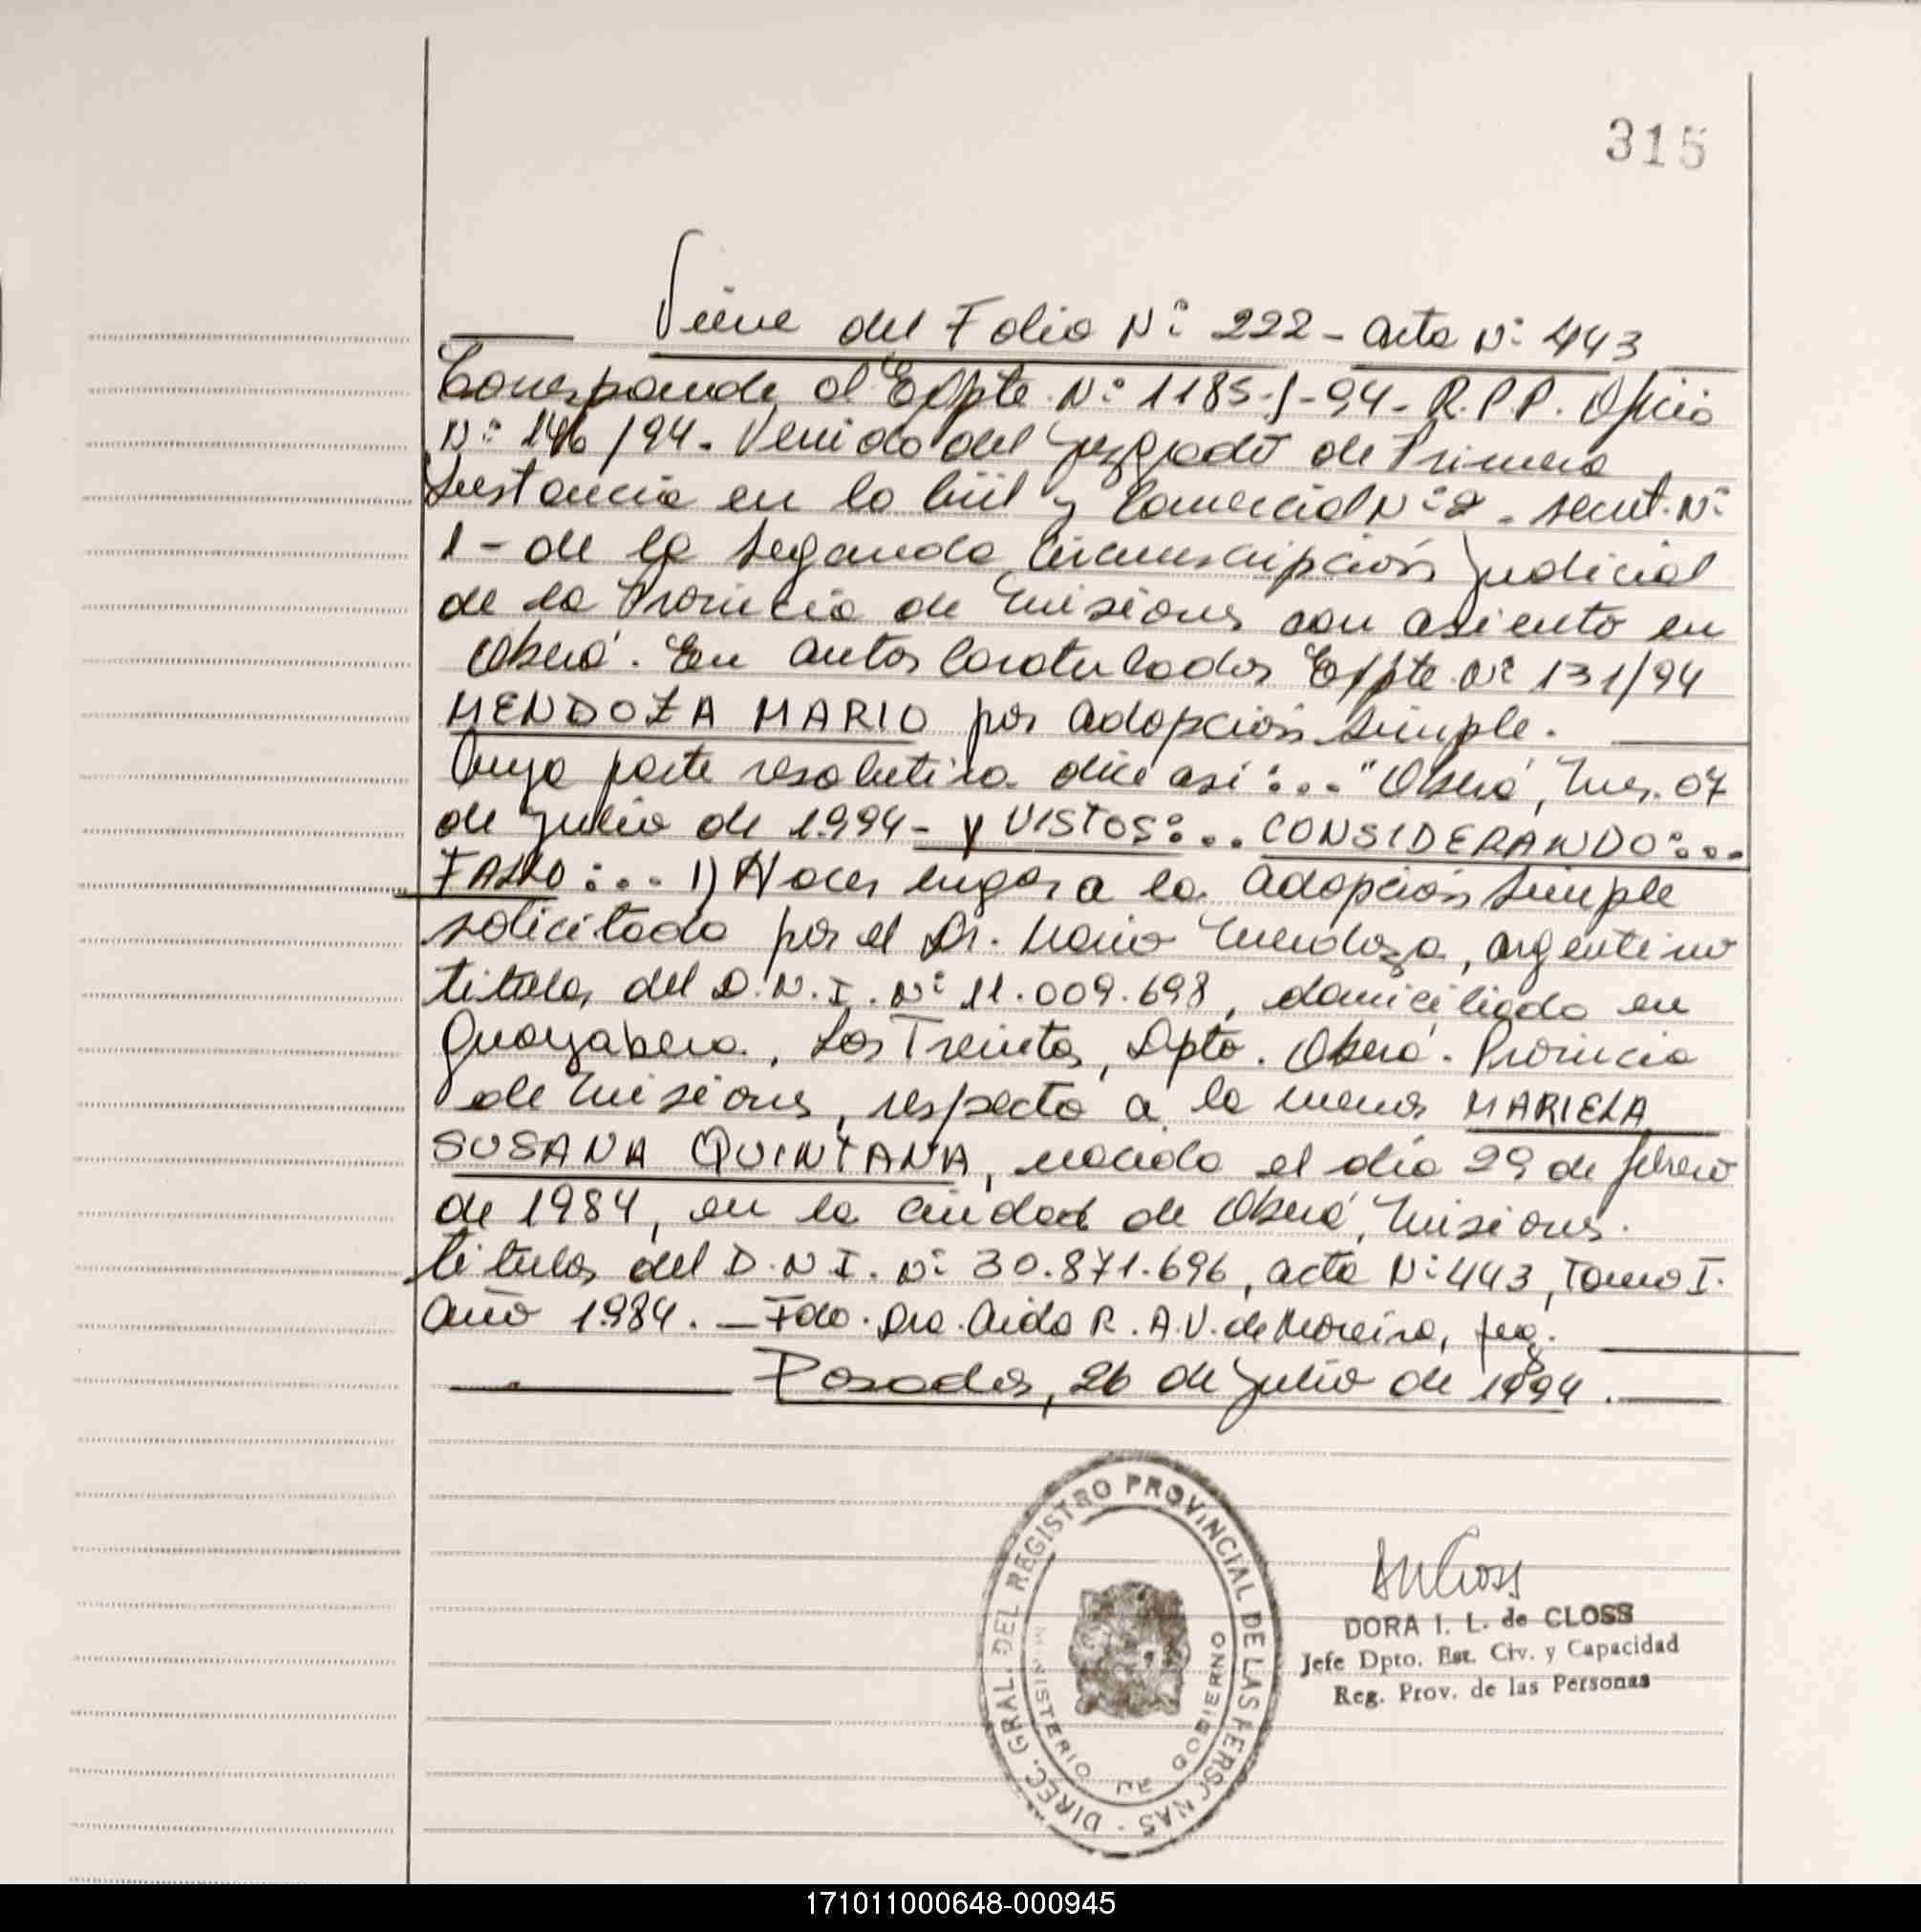 315
Viene del Folio N° 222 - Acta N° 443
Corresponde al Expte. N° 1185-J-94- R.P.P. Oficio
N° 146/94. Venido del Juzgado de Primera
Instancia en lo Civil y Comercial N° 2. Secret. N°
1 - de la Segunda Circunscripción Judicial
de la Provincia de Misiones con asiento en
Oberá. En autos Caratulados Expte. N° 131/94
MENDOZA MARIO por adopción simple.
Cuya parte resolutiva dice así:... "Oberá, Mnes. 07
de julio de 1994- Y VISTOS:... CONSIDERANDO:...
FALLO:... 1) Hacer lugar a la adopción simple
solicitada por el Sr. Mario Mendoza, argentino
titular del D.N.I. N° 11.009.698, domiciliado en
Guayabera, Los Treinta, Dpto. Oberá. Provincia
de Misiones, respecto a la menor MARIELA
SUSANA QUINTANA, nacida el día 29 de febrero
de 1984, en la ciudad de Oberá, Misiones.
titular del D.N.I. N° 30.871.696, acta N° 443, Tomo I.
Año 1984. - Fdo. Dra. Aida R. A. V. de Moreira, Juez.
Posadas, 26 de julio de 1994.
DIREC. GRAL. DEL REGISTRO PROVINCIAL DE LAS PERSONAS -
MINISTERIO DE GOBIERNO
DORA I. L. de CLOSS
Jefe Dpto. Est. Civ. y Capacidad
Reg. Prov. de las Personas
171011000648-000945